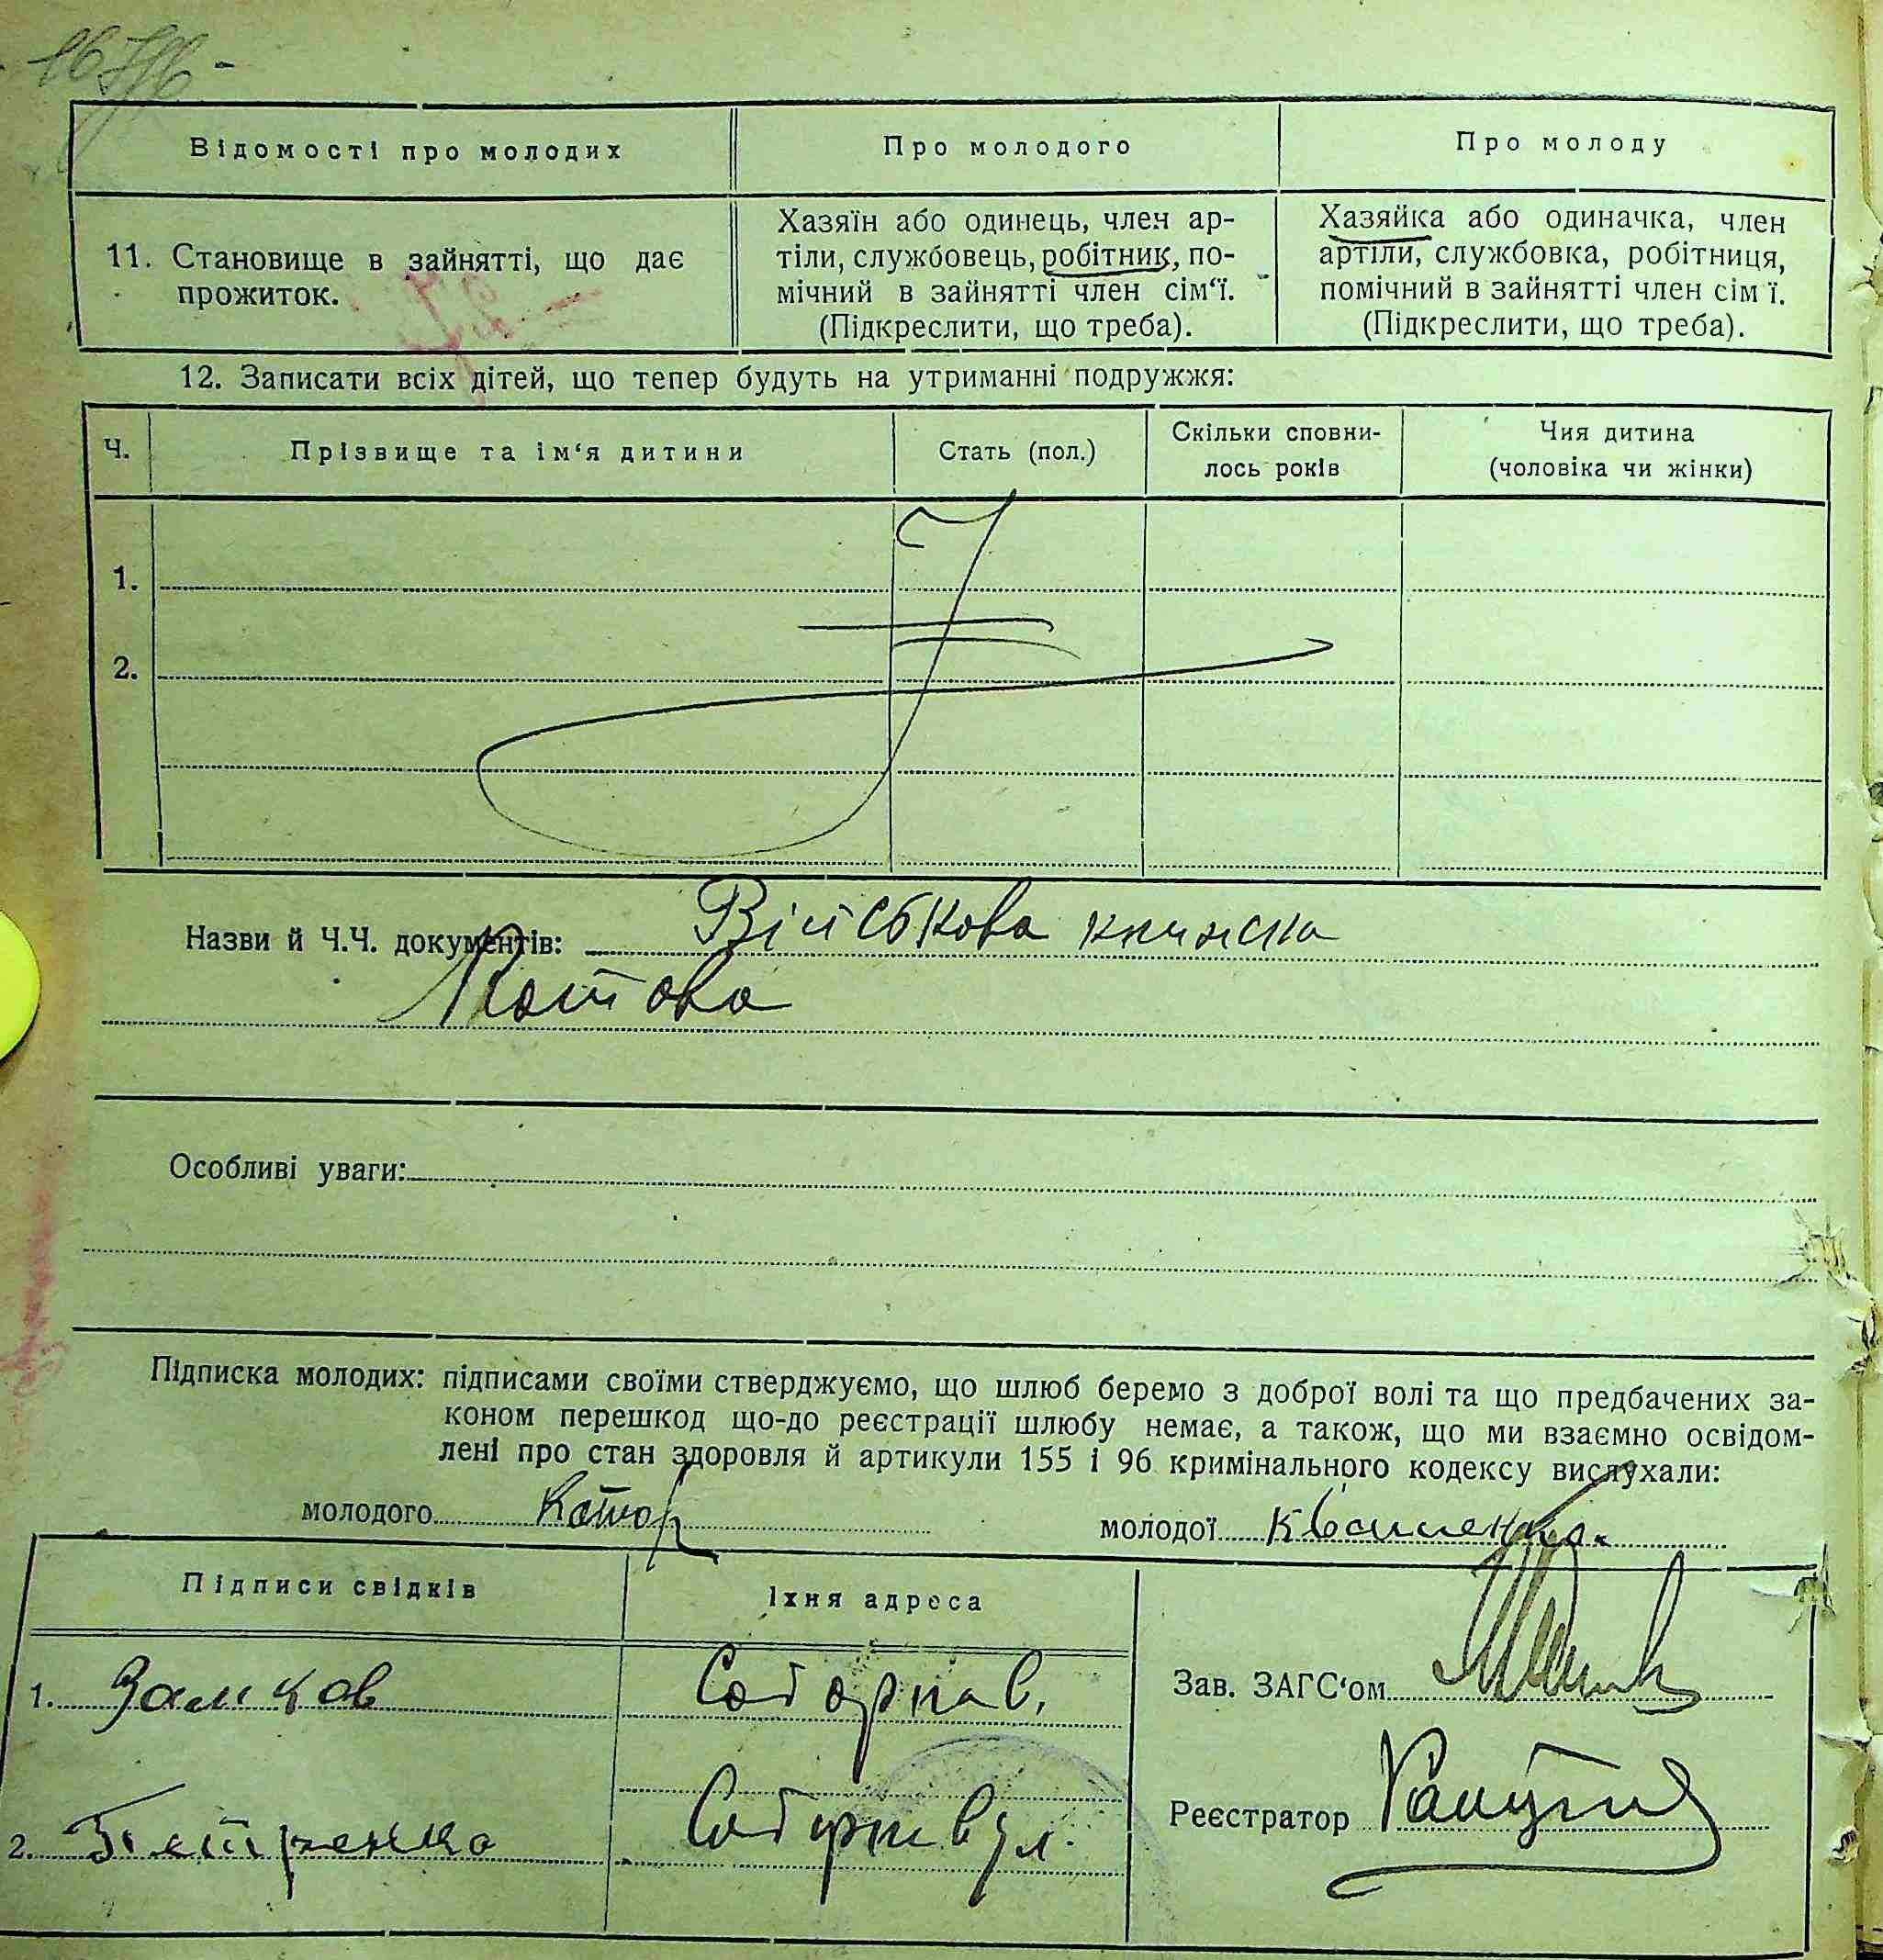 Відомості про молодих
Про молодого
Про молоду
11. Становище в зайнятті, що дає
прожиток.
Хазяїн або одинець, член ар-
тіли, службовець, робітник, по-
мічний в зайнятті член сім'ї.
(Підкреслити, що треба).
Хазяйка або одиначка, член
артіли, службовка, робітниця,
помічний в зайнятті член сім ї.
(Підкреслити, що треба).
12. Записати всіх дітей, що тепер будуть на утриманні подружжя:
Ч.
Прізвище та ім'я дитини
Стать (пол.)
Скільки сповни-
лось років
Чия дитина
(чоловіка чи жінки)
1.
2.
Назви й Ч.Ч. документів: Військова книжка
Котова
Особливі уваги:
Підписка молодих: підписами своїми стверджуємо, що шлюб беремо з доброї волі та що предбачених за-
коном перешкод що-до реєстрації шлюбу немає, а також, що ми взаємно освідом-
лені про стан здоровля й артикули 155 і 96 кримінального кодексу вислухали:
молодого Котов
молодої
Підписи свідків
Їхня адреса
1. Замков
Зав. ЗАГС'ом
2. Петренко
Реєстратор